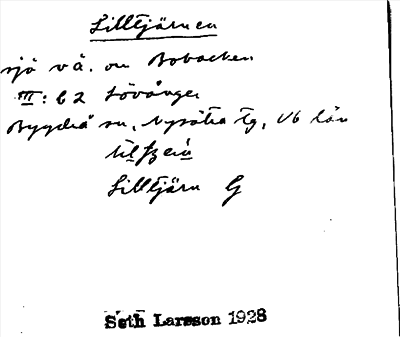 Lilltjärnen
sjö v å. om Bobacken
III: b 2 Lövånger
Bygdeå sn, Nysätra tg, Vb län
Lilltjärn G
Seth Larsson 1928